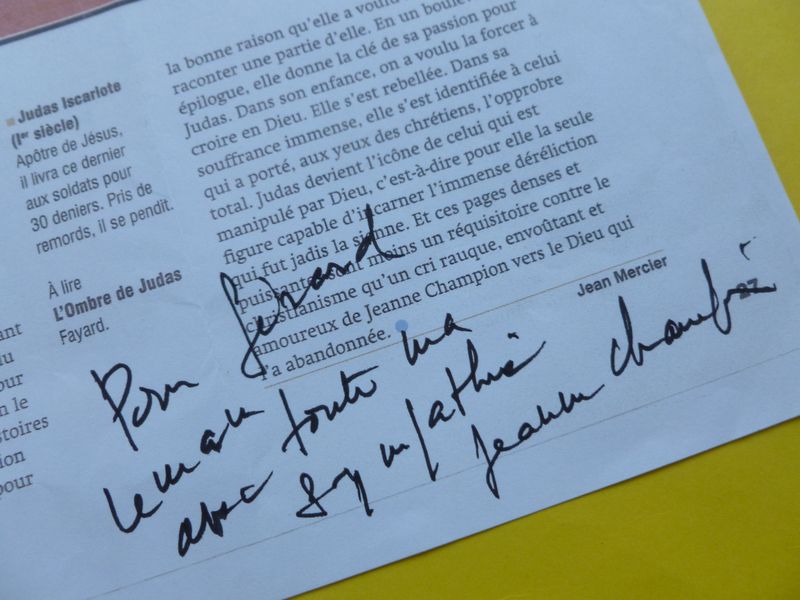 Judas Iscariote
(Ier siècle)
Apôtre de Jésus,
il livra ce dernier
aux soldats pour
30 deniers. Pris de
remords, il se pendit.
À lire
L'Ombre de Judas
Fayard.
la bonne raison qu'elle a voulu
raconter une partie d'elle. En un
épilogue, elle donne la clé de sa passion pour
Judas. Dans son enfance, on a voulu la forcer à
croire en Dieu. Elle s'est rebellée. Dans sa
souffrance immense, elle s'est identifiée à celui
qui a porté, aux yeux des chrétiens, l'opprobre
total. Judas devient l'icône de celui qui est
manipulé par Dieu, c'est-à-dire pour elle la seule
figure capable d'incarner l'immense déréliction
qui fut jadis la sienne. Et ces pages denses et
puissantes sont moins un réquisitoire contre le
christianisme qu'un cri rauque, envoûtant et
amoureux de Jeanne Champion vers le Dieu qui
l'a abandonnée.
Jean Mercier
27
Pour Gérard
avec toute ma
sympathie
Jeanne Champion
ant
du
our
n le
stoires
ion
pour